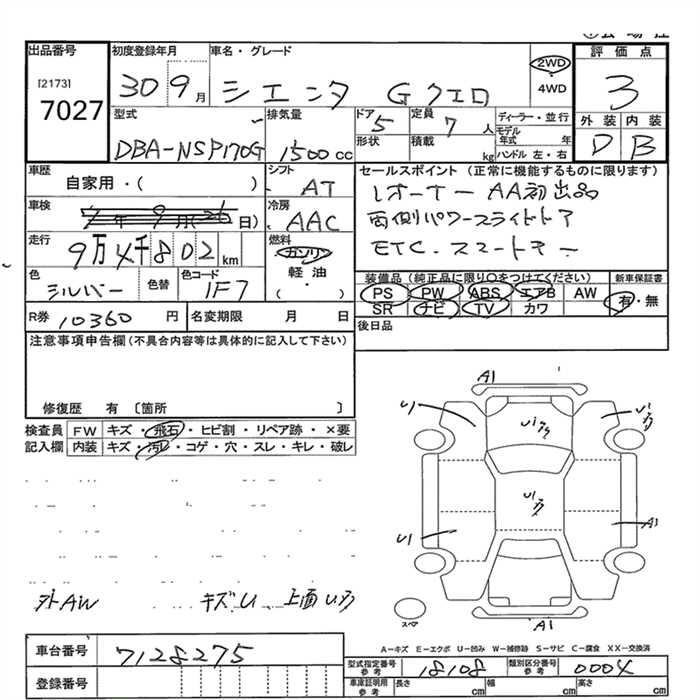 出品番号
[2173]
7027
初度登録年月
30 9月
車名・グレード
シエンタ Gクエロ
2WD
4WD
評価点
3
外装 内装
D B
型式
DBA-NSP170G
排気量
1500cc
ドア 5
形状
定員 7人
積載 kg
ディーラー・並行
モデル年式 年
ハンドル 左・右
車歴
自家用・( )
シフト
AT
車検
年9月(26日)
冷房
AAC
走行
9万4千802km
燃料
ガソリン
軽油
( )
色
シルバー
色替
色コード
1F7
R券 10360円
名変期限 月 日
セールスポイント(正常に機能するものに限ります)
1オーナー AA初出品
両側パワースライドドア
ETC.スマートキー
装備品(純正品に限り○をつけてください)
PS PW ABS エアB AW
SR ナビ TV カワ
新車保証書
有・無
後日品
注意事項申告欄(不具合内容等は具体的に記入して下さい)
修復歴 有 〔箇所 〕
検査員記入欄
FW キズ・飛石・ヒビ割・リペア跡・×要
内装 キズ・汚レ・コゲ・穴・スレ・キレ・破レ
A1
U1
U1
A1
U1
A1
スペ
外AW キズU、上面U,
A-キズ E-エクボ U-凹み W-補修跡 S-サビ C-腐食 XX-交換済
車台番号 7128275
登録番号
型式指定番号参考 18108
類別区分番号参考 0004
車庫証明用参考 長さ cm 幅 cm 高さ cm